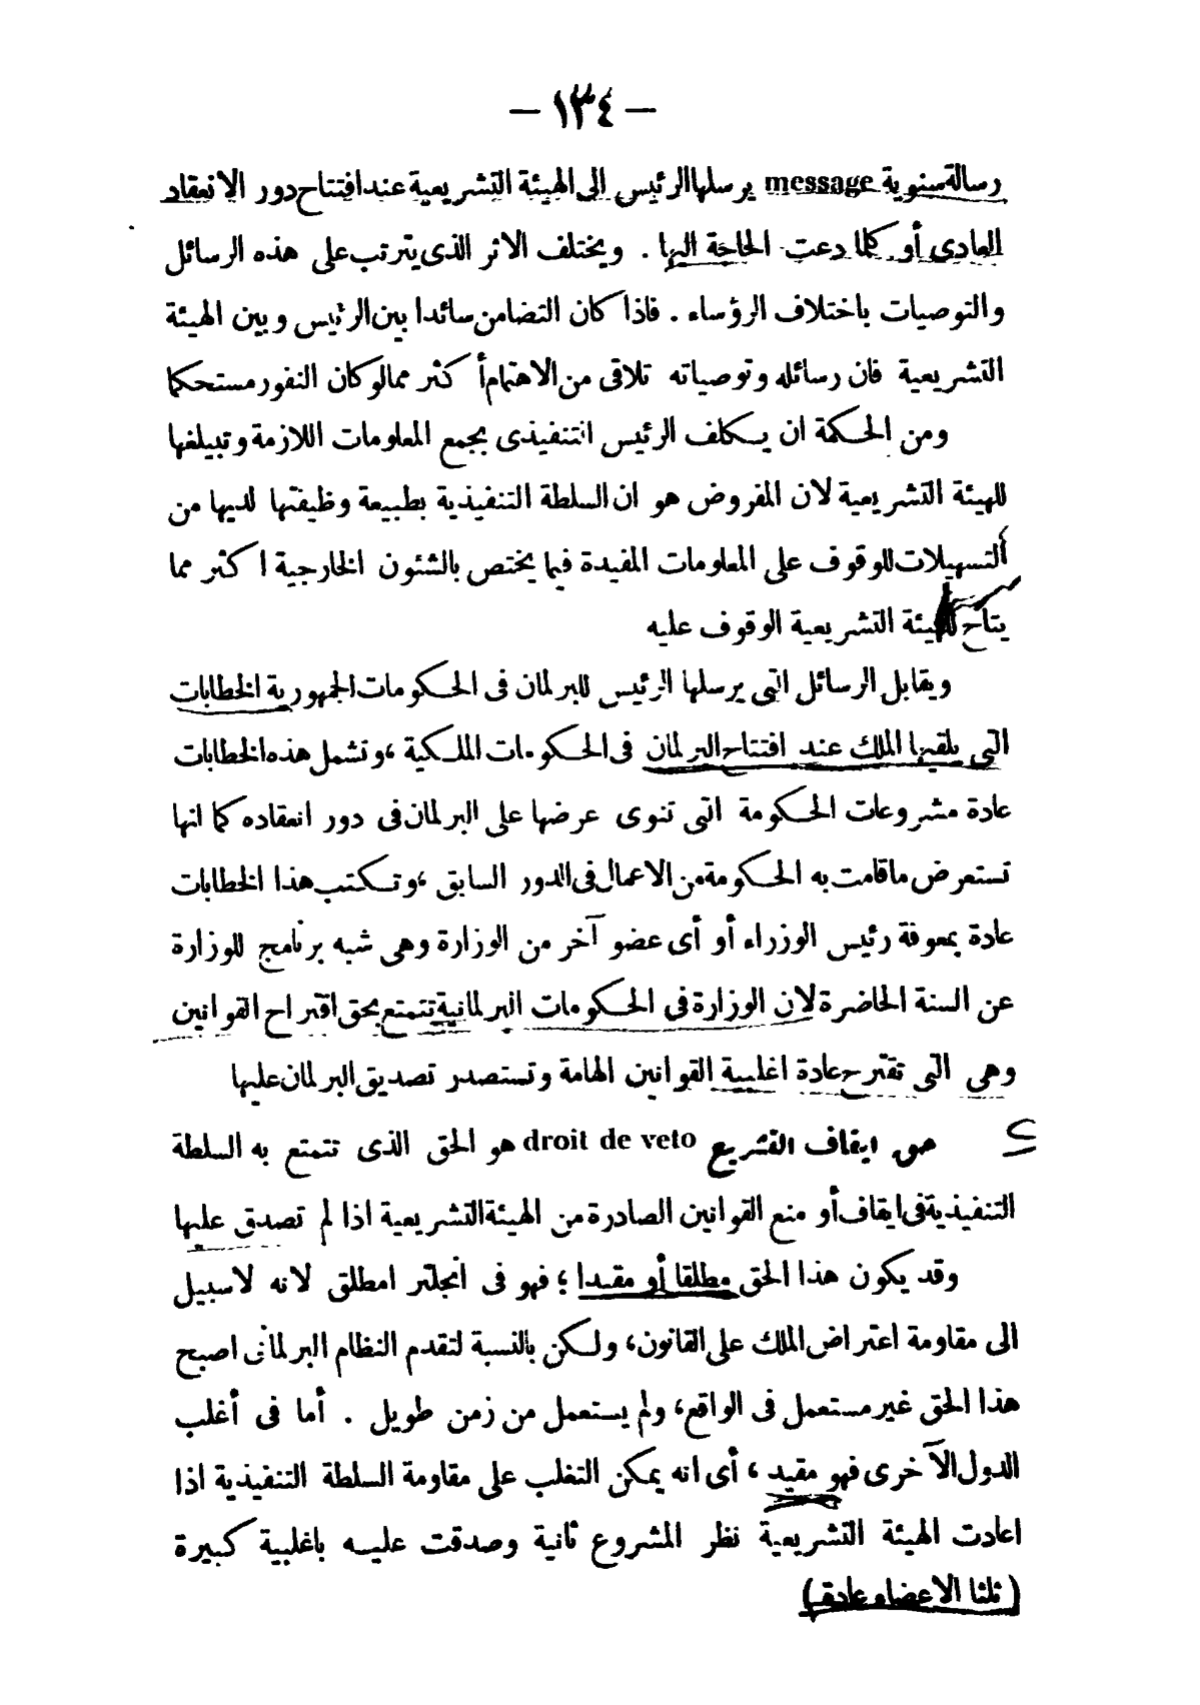 — ١٣٤ —
رسالة سنوية message يرسلها الرئيس الى الهيئة التشريعية عند افتتاح دور الانعقاد
العادى أو كلما دعت الحاجة اليها . ويختلف الاثر الذى يترتب على هذه الرسائل
والتوصيات باختلاف الرؤساء . فاذا كان التضامن سائدا بين الرئيس وبين الهيئة
التشريعية فان رسائله وتوصياته تلاقى من الاهتمام أكثر مما لو كان النفور مستحكما
ومن الحكمة ان يكلف الرئيس التنفيذى بجمع المعلومات اللازمة وتبيلغها
للهيئة التشريعية لان المفروض هو ان السلطة التنفيذية بطبيعة وظيفتها لديها من
التسهيلات للوقوف على المعلومات المفيدة فيما يختص بالشئون الخارجية اكثر مما
يتاح للهيئة التشريعية الوقوف عليه
ويقابل الرسائل التى يرسلها الرئيس للبرلمان فى الحكومات الجمهورية الخطابات
التى يلقيها الملك عند افتتاح البرلمان فى الحكومات الملكية ، وتشمل هذه الخطابات
عادة مشروعات الحكومة التى تنوى عرضها على البرلمان فى دور انعقاده كما انها
تستعرض ما قامت به الحكومة من الاعمال فى الدور السابق ، وتكتب هذا الخطابات
عادة بمعوفة رئيس الوزراء أو أى عضو آخر من الوزارة وهى شبه برنامج للوزارة
عن السنة الحاضرة لان الوزارة فى الحكومات البرلمانية تتمتع بحق اقتراح القوانين
وهى التى تقترح عادة اغلبية القوانين الهامة وتستصدر تصديق البرلمان عليها
حق ايقاف التشريع droit de veto هو الحق الذى تتمتع به السلطة
التنفيذية فى ايقاف أو منع القوانين الصادرة من الهيئة التشريعية اذا لم تصدق عليها
وقد يكون هذا الحق مطلقا أو مقيدا ؛ فهو فى انجلترا مطلق لانه لا سبيل
الى مقاومة اعتراض الملك على القانون، ولكن بالنسبة لتقدم النظام البرلمانى اصبح
هذا الحق غير مستعمل فى الواقع، ولم يستعمل من زمن طويل . أما فى أغلب
الدول الآخرى فهو مقيد ، أى انه يمكن التغلب على مقاومة السلطة التنفيذية اذا
اعادت الهيئة التشريعية نظر المشروع ثانية وصدقت عليه باغلبية كبيرة
( ثلثا الاعضاء عادة )